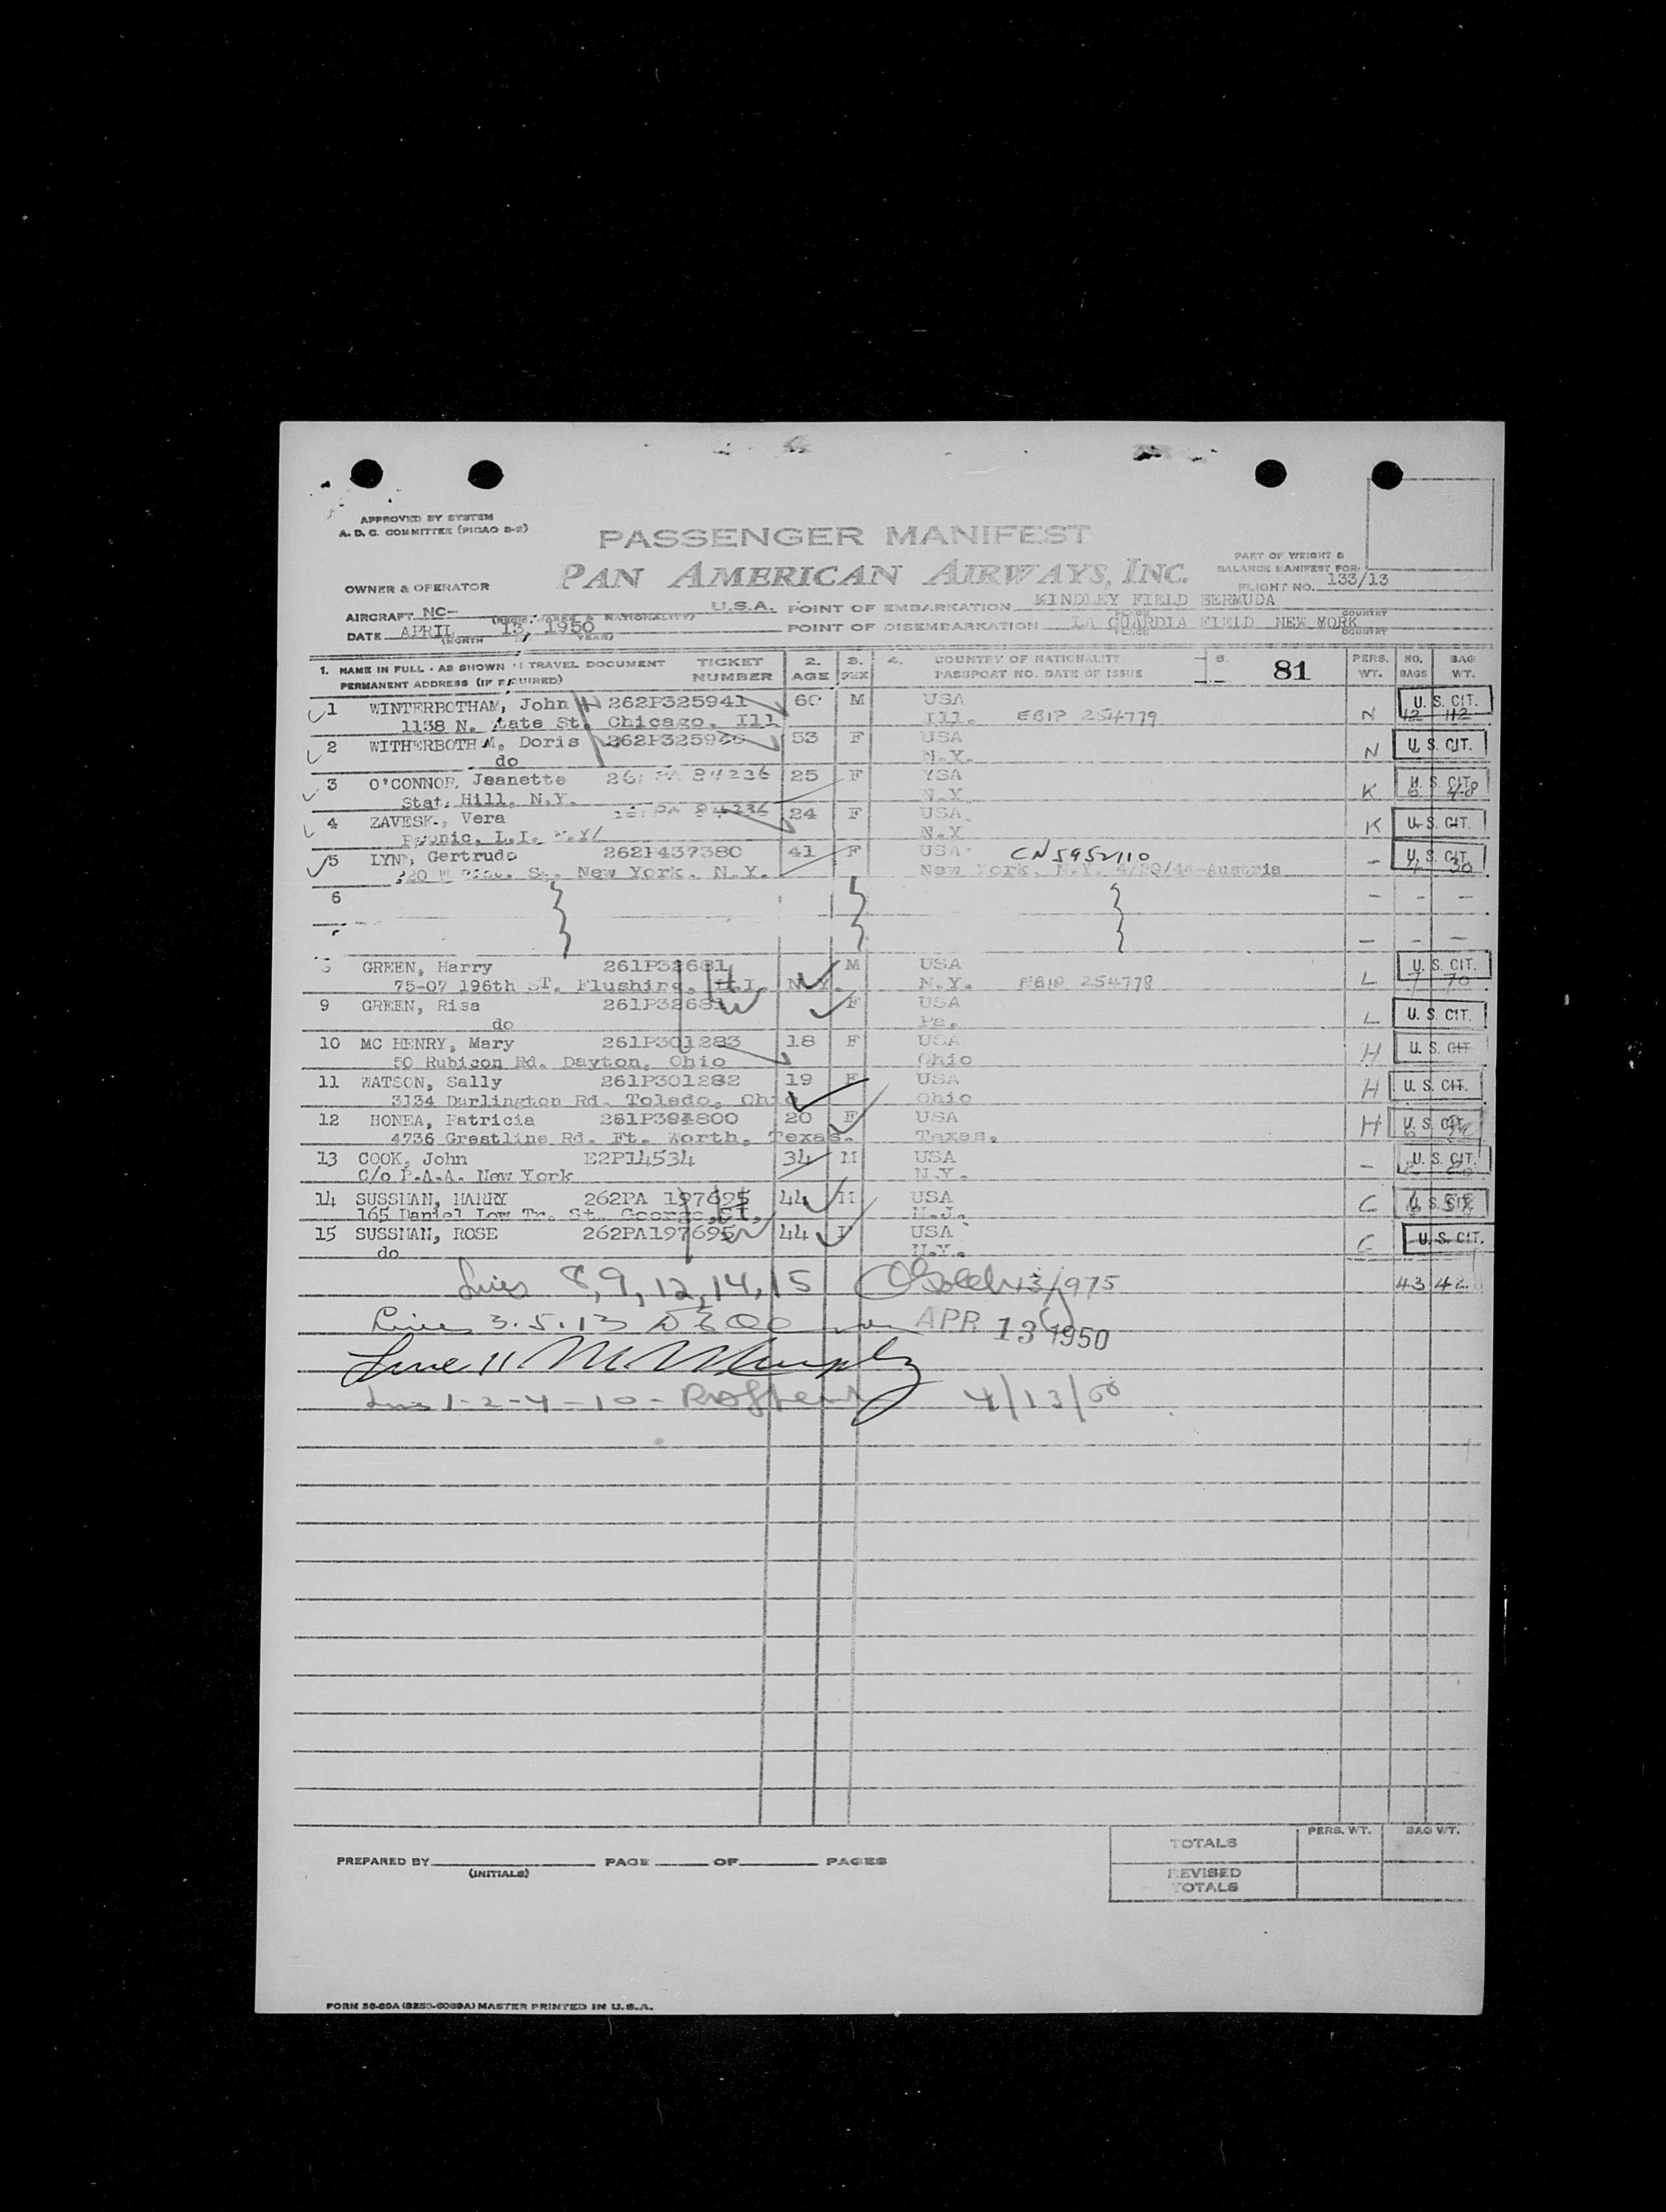 APPROVED BY SYSTEM
A. D. C. COMMITTEE (PICAO 8-2)
PASSENGER MANIFEST
PAN AMERICAN AIRWAYS, INC.
PART OF WEIGHT &
BALANCE MANIFEST FOR:
OWNER & OPERATOR
FLIGHT NO. 133/13
AIRCRAFT NC- U.S.A. POINT OF EMBARKATION KINDLEY FIELD BERMUDA
DATE APRIL 13, 1950 POINT OF DISEMBARKATION LA GUARDIA FIELD NEW YORK
(MONTH YEAR) PLACE COUNTRY
1. NAME IN FULL - AS SHOWN TRAVEL DOCUMENT TICKET 2. 3. 4. COUNTRY OF NATIONALITY 81 PERS. NO. BAG
PERMANENT ADDRESS (IF REQUIRED) NUMBER AGE SEX PASSPORT NO. DATE OF ISSUE WT. BAGS WT.
1 WINTERBOTHAM, John 262P325941 60 M USA U. S. CIT.
1138 N. tate St. Chicago, Ill Ill. EBIP 254779 N 12 112
2 WITHERBOTH M, Doris 53 F USA U. S. CIT.
do N.Y. N
3 O'CONNOR, Jeanette 84236 25 F YSA U. S. CIT.
Stat. Hill, N.Y. N.Y. K
4 Vera 24 F USA U. S. CIT.
L.I. N.Y. K
5 Gertrude 262P437380 41 F USA CN5952110 U. S. CIT.
New York, N.Y. New York, N.Y. Austria - 30
6 - - -
- - -
GREEN, Harry 261P32681 M USA U. S. CIT.
75-07 196th ST. Flushing, L.I. N.Y. N.Y. EBIP 254778 L 7 70
9 GREEN, Risa F USA U. S. CIT.
do Pa. L
10 MC HENRY, Mary 261P301283 18 F USA U. S. CIT.
50 Rubicon Rd. Dayton, Ohio Ohio H
11 WATSON, Sally 261P301282 19 F USA U. S. CIT.
3134 Darlington Rd. Toledo, Ohio Ohio H
12 HONEA, Patricia 20 F USA U. S. CIT.
4736 Crestline Rd. Ft. Worth, Texas. Texas. H
13 COOK, John E2P14534 34 M USA U. S. CIT.
C/o P.A.A. New York N.Y. -
14 SUSSMAN, HARRY 262PA 197695 44 M USA U. S. CIT.
165 Daniel Low Tr. St. George N.J. C
15 SUSSMAN, ROSE 44 F USA U. S. CIT.
do N.Y. C
Lines 8, 9, 12, 14, 15 43
Lines 3.5.13 APR 13 1950
Line 11
Lines 1-2-4-10- 4/13/50
TOTALS PERS. WT. BAG WT.
REVISED
TOTALS
PREPARED BY PAGE OF PAGES
(INITIALS)
MASTER PRINTED IN U.S.A.